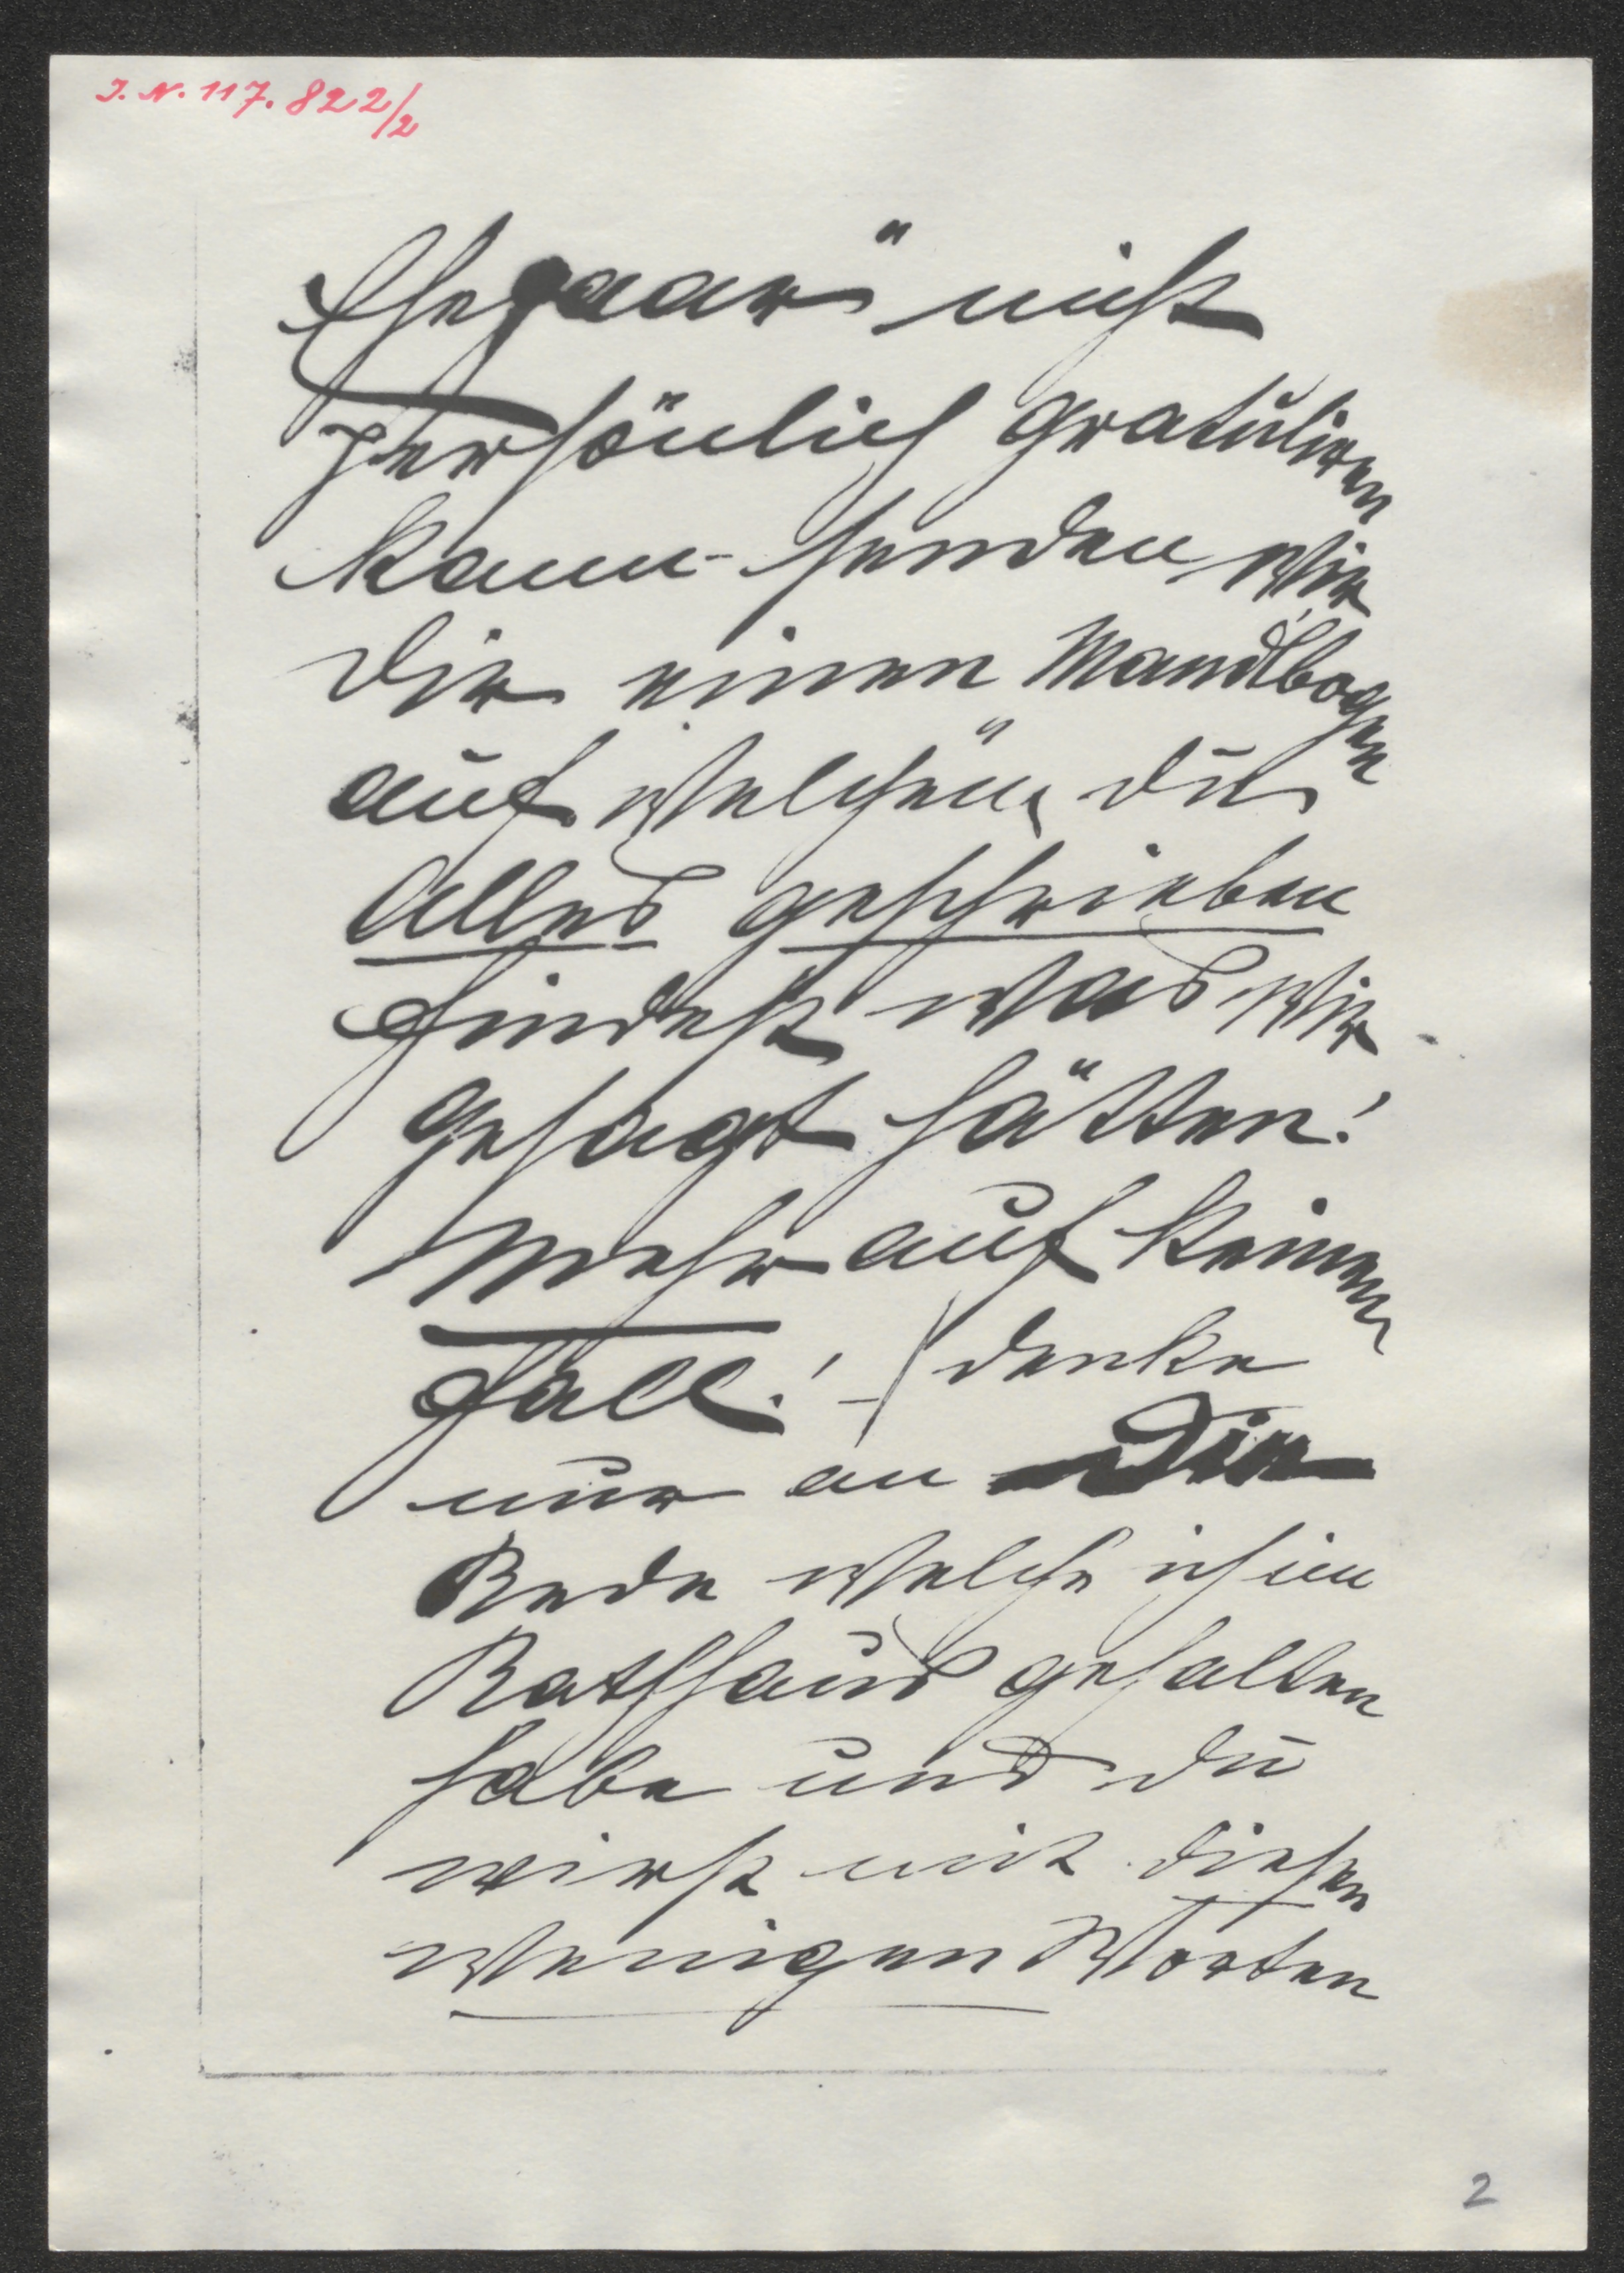 I. N. 117.822/2
Ehepaar" nicht
persönlich gratuliren
kann - senden wir
Dir einen Mandlbogen
auf welchen Du
Alles geschrieben
findest was wir
gesagt hätten!
Mehr auf keinen
Fall! – denke
nur an Die
Rede welche ich im
Rathhaus gehalten
habe und Du
wirst mit diesen
wenigen Worten
2